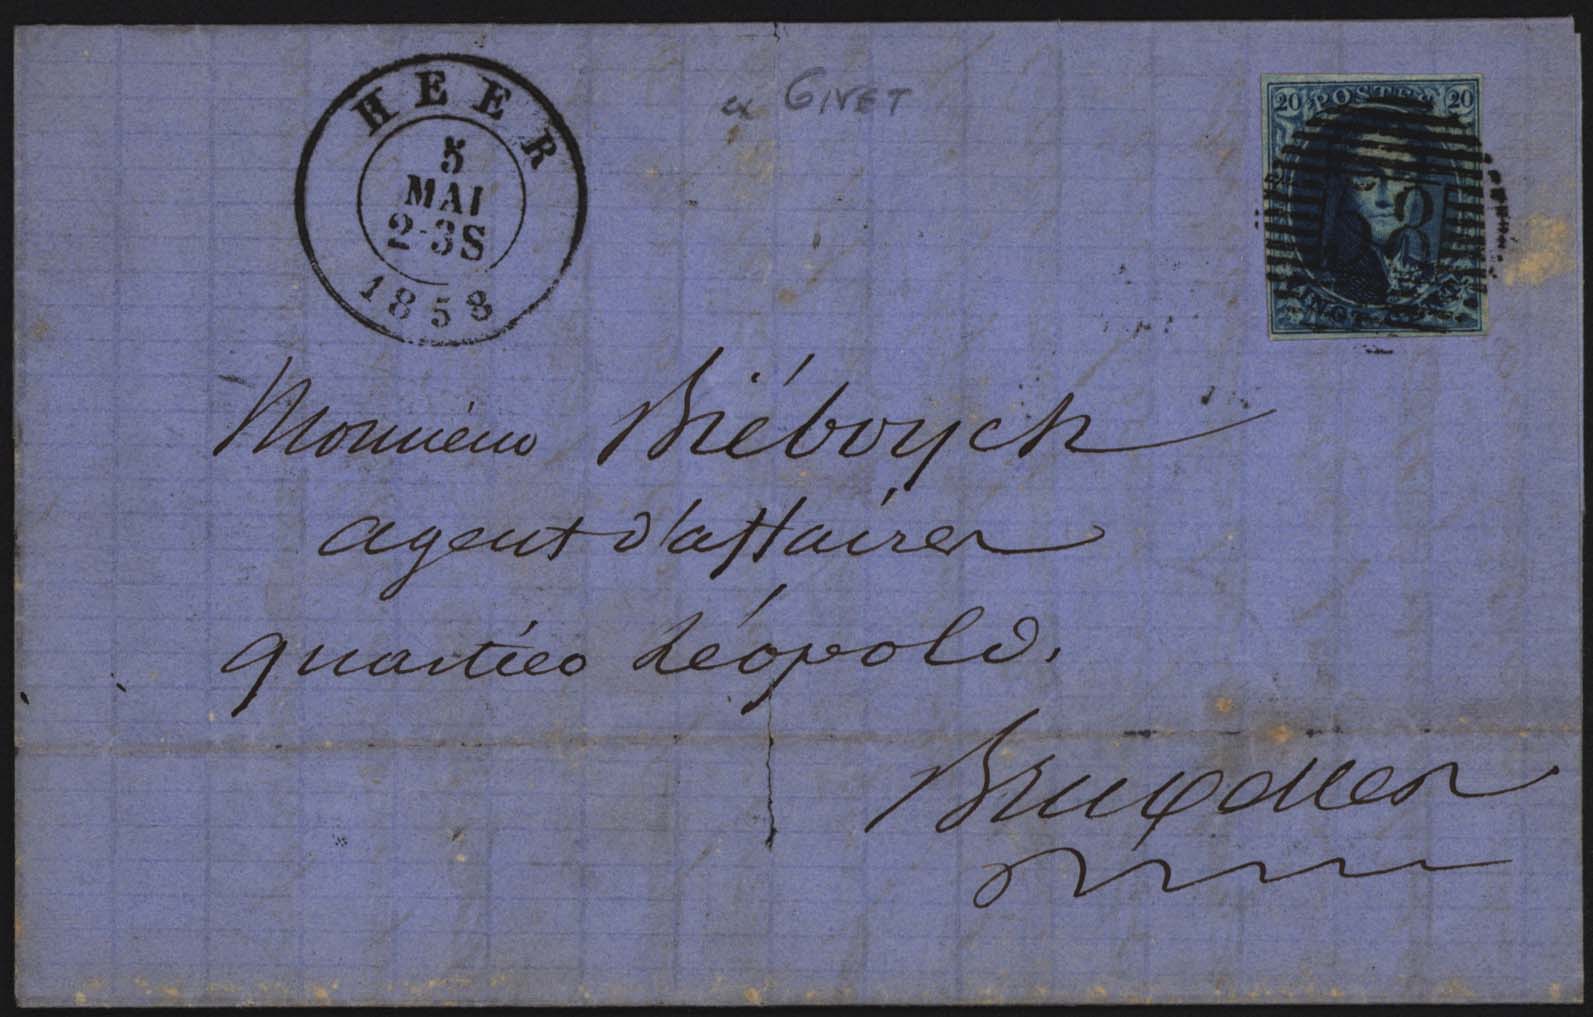 HEER
5
MAI
2-3S
1858
ex GIVET
20 POSTES 20
Monsieur Biéboyck
agent d'affaires
quartier Léopold.
Bruxelles